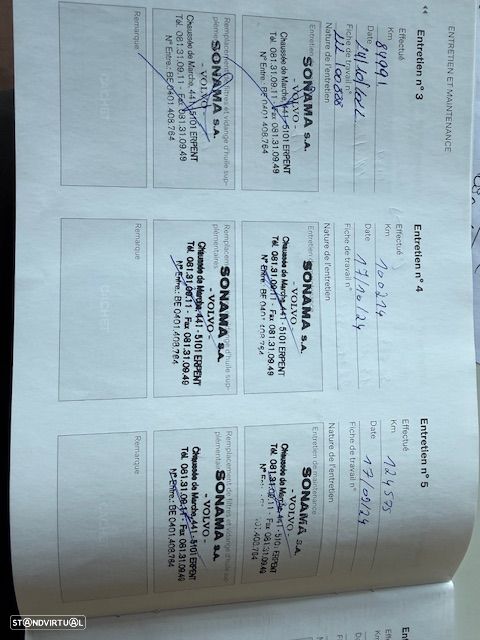 ENTRETIEN ET MAINTENANCE
Entretien n° 3
Effectué
Km 84991
Date
Fiche de travail n°
Nature de l'entretien
Entretien
SONAMA S.A.
- VOLVO -
Chaussée de Marche, 441 - 5101 ERPENT
Tél. 081.31.09.11 - Fax 081.31.09.49
N° Entre.: BE 0401.408.764
Remplacement filtres et vidange d'huile sup-
plémentaires
SONAMA S.A.
- VOLVO -
Chaussée de Marche, 441 - 5101 ERPENT
Tél. 081.31.09.11 - Fax 081.31.09.49
N° Entre.: BE 0401.408.764
Remarque
Entretien n° 4
Effectué
Km 100214
Date 17/10/24
Fiche de travail n°
Nature de l'entretien
Entretien
SONAMA S.A.
- VOLVO -
Chaussée de Marche, 441 - 5101 ERPENT
Tél. 081.31.09.11 - Fax 081.31.09.49
N° Entre.: BE 0401.408.764
Remplacement d'huile sup-
plémentaires
SONAMA S.A.
- VOLVO -
Chaussée de Marche, 441 - 5101 ERPENT
Tél. 081.31.09.11 - Fax 081.31.09.49
N° Entre.: BE 0401.408.764
Remarque
Entretien n° 5
Effectué
Km 124575
Date
Fiche de travail n°
Nature de l'entretien
Entretien de maintenance
SONAMA S.A.
- VOLVO -
Chaussée de Marche, 441 - 5101 ERPENT
Tél. 081.31.09.11 - Fax 081.31.09.49
Remplacement de filtres et vidange d'huile sup-
plémentaires
SONAMA S.A.
- VOLVO -
Chaussée de Marche, 441 - 5101 ERPENT
Tél. 081.31.09.11 - Fax 081.31.09.49
N° Entre.: BE 0401.408.764
Remarque
STANDVIRTUAL